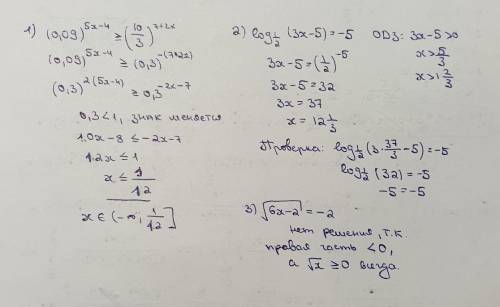 1) (0,09)^{5x-4} ≥ (10/3)^{7+2x}
(0,09)^{5x-4} ≥ (0,3)^{-(7+2x)}
(0,3)^{2(5x-4)} ≥ 0,3^{-2x-7}
0,3 < 1, знак меняется
10x - 8 ≤ -2x - 7
12x ≤ 1
x ≤ 1/12
x ∈ (-∞; 1/12]
2) log_{1/2} (3x-5) = -5 ОДЗ: 3x-5>0
x > 5/3
x > 1 2/3
3x-5 = (1/2)^{-5}
3x-5 = 32
3x = 37
x = 12 1/3
Проверка: log_{1/2} (3·37/3 - 5) = -5
log_{1/2} (32) = -5
-5 = -5
3) √(6x-2) = -2
нет решения, т.к.
правая часть <0,
а √x ≥ 0 всегда.